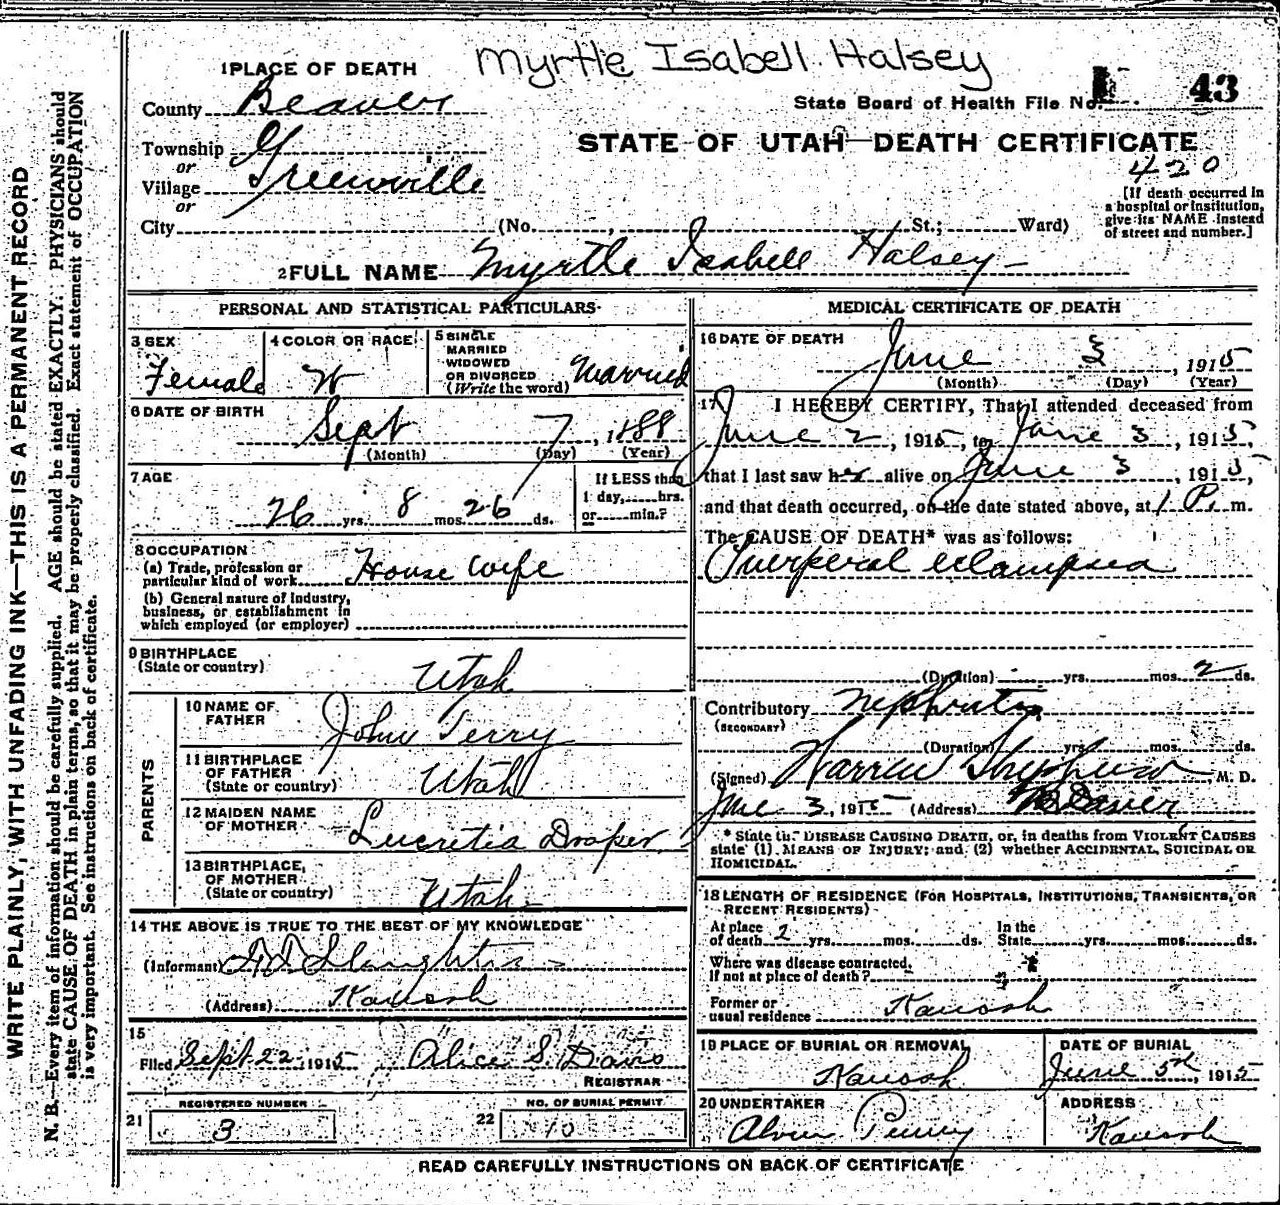 Myrtle Isabell Halsey
1 PLACE OF DEATH
County Beaver
State Board of Health File No. 43
Township
or
Village Greenville
or
STATE OF UTAH—DEATH CERTIFICATE
420
[If death occurred in a hospital or institution, give its NAME instead of street and number.]
City (No. , St.; Ward)
2 FULL NAME Myrtle Isabell Halsey
PERSONAL AND STATISTICAL PARTICULARS
3 SEX
Female
4 COLOR OR RACE
W
5 SINGLE
MARRIED
WIDOWED
OR DIVORCED
(Write the word) Married
6 DATE OF BIRTH
Sept 7, 1888
(Month) (Day) (Year)
7 AGE
26 yrs. 8 mos. 26 ds.
If LESS than
1 day, hrs.
or min.?
8 OCCUPATION
(a) Trade, profession or
particular kind of work House wife
(b) General nature of industry,
business, or establishment in
which employed (or employer)
9 BIRTHPLACE
(State or country)
Utah
PARENTS
10 NAME OF
FATHER
John Terry
11 BIRTHPLACE
OF FATHER
(State or country)
Utah
12 MAIDEN NAME
OF MOTHER
Lucretia Draper
13 BIRTHPLACE
OF MOTHER
(State or country)
Utah
14 THE ABOVE IS TRUE TO THE BEST OF MY KNOWLEDGE
(Informant)
(Address) Kanosh
15
Filed Sept 22 1915 Alice S. Davis
REGISTRAR
21 REGISTERED NUMBER
3
22 NO. OF BURIAL PERMIT
10
MEDICAL CERTIFICATE OF DEATH
16 DATE OF DEATH
June 3, 1915
(Month) (Day) (Year)
17 I HEREBY CERTIFY, That I attended deceased from
June 2, 1915, to June 3, 1915,
that I last saw her alive on June 3, 1915,
and that death occurred, on the date stated above, at 1 P. m.
The CAUSE OF DEATH* was as follows:
Puerperal eclampsia
(Duration) yrs. mos. 2 ds.
Contributory Nephritis
(SECONDARY)
(Duration) yrs. mos. ds.
(Signed) M. D.
June 3, 1915 (Address) Beaver
* State the DISEASE CAUSING DEATH, or, in deaths from VIOLENT CAUSES
state (1) MEANS OF INJURY; and (2) whether ACCIDENTAL, SUICIDAL OR
HOMICIDAL.
18 LENGTH OF RESIDENCE (FOR HOSPITALS, INSTITUTIONS, TRANSIENTS, OR
RECENT RESIDENTS)
At place
of death 2 yrs. mos. ds.
In the
State yrs. mos. ds.
Where was disease contracted,
If not at place of death?
Former or
usual residence Kanosh
19 PLACE OF BURIAL OR REMOVAL
Kanosh
DATE OF BURIAL
June 5th, 1915
20 UNDERTAKER
Alvin Penny
ADDRESS
Kanosh
READ CAREFULLY INSTRUCTIONS ON BACK OF CERTIFICATE
WRITE PLAINLY, WITH UNFADING INK—THIS IS A PERMANENT RECORD
N. B.—Every item of information should be carefully supplied. AGE should be stated EXACTLY. PHYSICIANS should
state CAUSE OF DEATH in plain terms, so that it may be properly classified. Exact statement of OCCUPATION
is very important. See instructions on back of certificate.